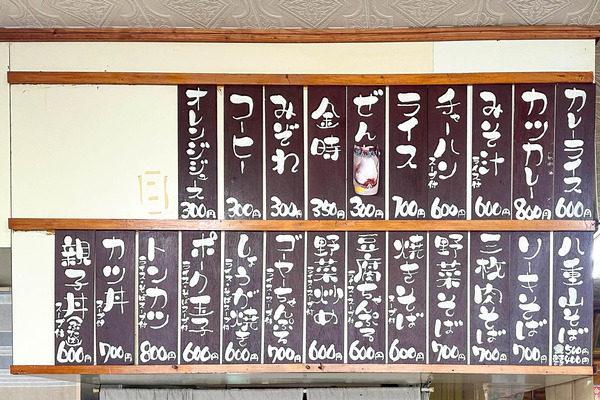 カレーライス 600円
カツカレー 800円
みそ汁 ライス付 600円
チャーハン スープ付 600円
ライス 700円
ぜん 300円
金時 350円
みぞれ 300円
コーヒー 300円
オレンジジュース 300円
八重山そば 500円 600円
ソーキそば 700円
三枚肉そば 700円
野菜そば 700円
焼きそば スープ付 600円
豆腐ちゃんぷる 600円
野菜炒め 600円
ゴーヤちゃんぷる 700円
しょうが焼き 600円
ポーク玉子 600円
トンカツ 800円
カツ丼 スープ付 700円
親子丼 スープ付 600円